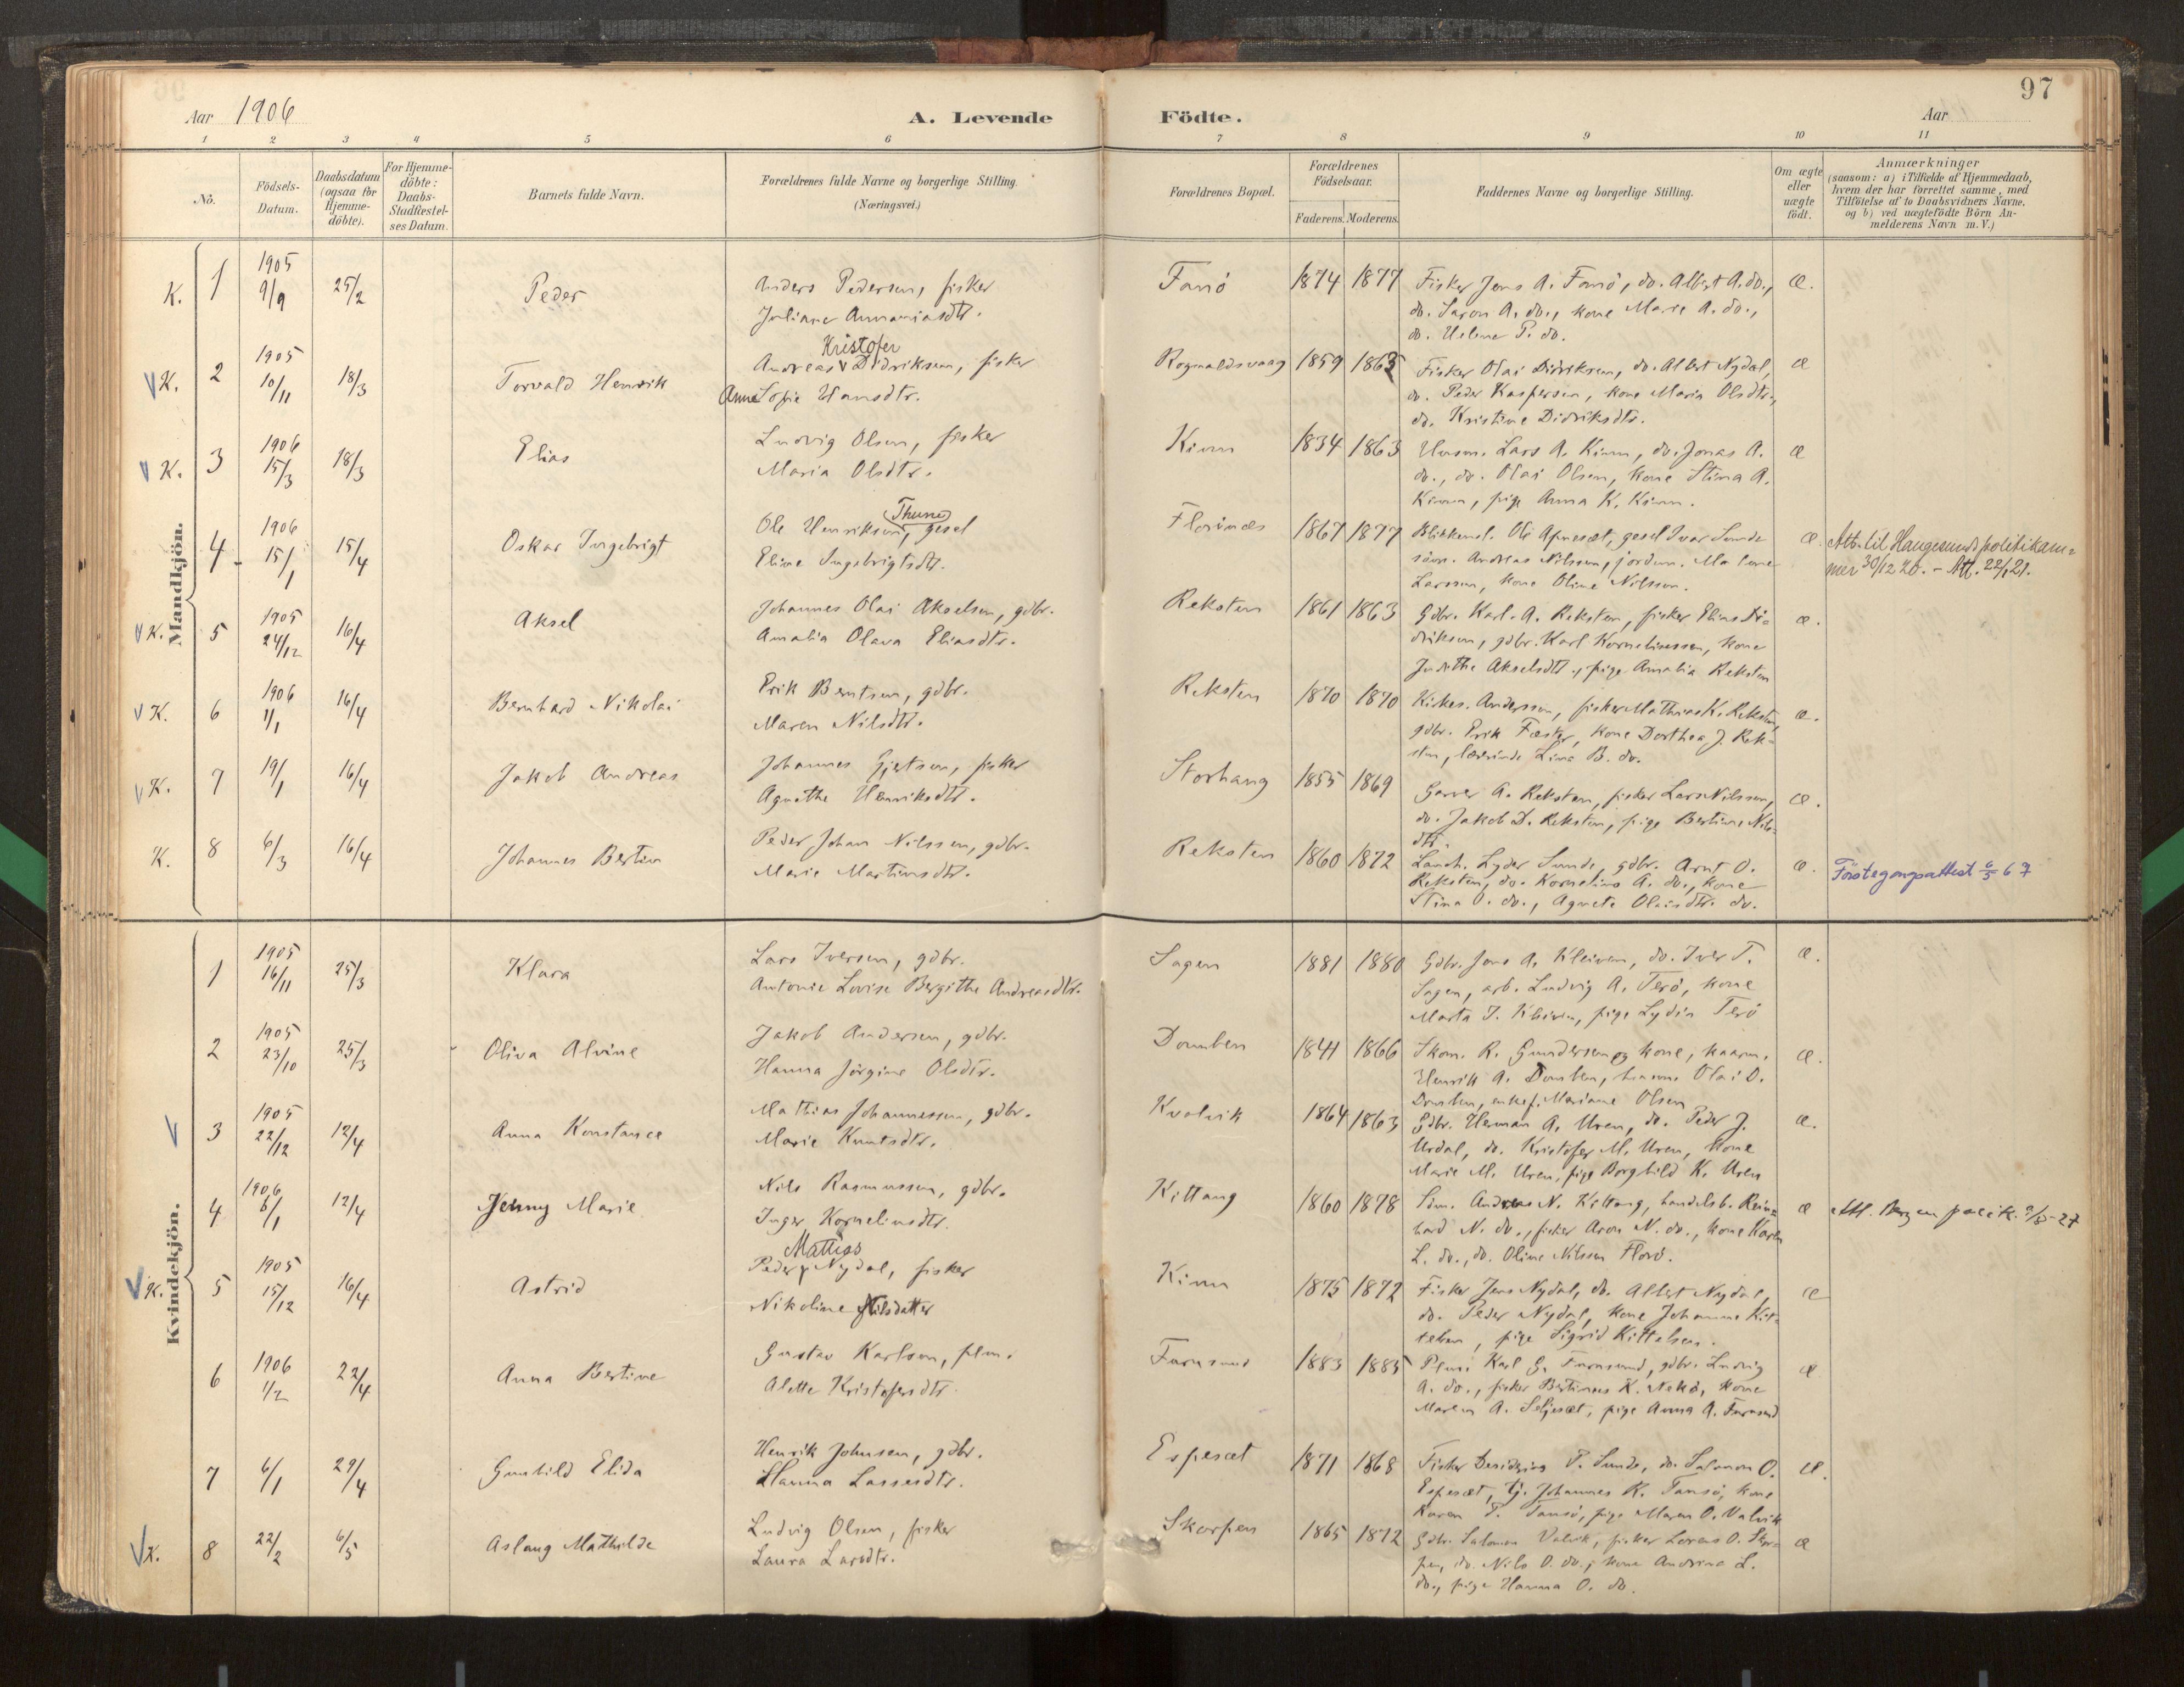 97
Aar 1906
A. Levende
Födte.
Aar
1 2 3 4 5 6 7 8 9 10 11
No.
Födsels-Datum.
Daabsdatum (ogsaa for Hjemme-döbte).
For Hjemme-döbte: Daabs-Stadfæstel-ses Datum.
Barnets fulde Navn.
Forældrenes fulde Navne og borgerlige Stilling.
(Næringsvei.)
Forældrenes Bopæl.
Forældrenes Födselsaar.
Faderens. Moderens.
Faddernes Navne og borgerlige Stilling.
Om ægte eller uægte födt.
Anmærkninger
(saasom: a) i Tilfælde af Hjemmedaab,
hvem der har forrettet samme, med
Tilföielse af to Daabsvidners Navne,
og b) ved uægtefödte Börn An-
melderens Navn m. V.)
Mandkjön.
K. 1 1905 9/9 25/2 Peder
Anders Pedersen, fisker
Juliane Annaniasdtr.
Fanö 1874 1877
Fisker Jens A. Fanö, do. Albert A. do.,
do. Saron A. do., kone Marie A. do.,
do. Helene P. do.
æ.
K. 2 1905 10/11 18/3 Torvald Henrik
Kristofer
Andreas Didriksen, fisker
Anne Sofie Hansdtr.
Rognaldsvaag 1859 1863
Fisker Olai Didriksen, do. Albert Nydal,
do. Peder Kaspersen, kone Maria Olsdtr.,
do. Kristine Didriksdtr.
æ
K. 3 1906 15/3 18/3 Elias
Ludvig Olsen, fisker
Maria Olsdtr.
Kinn 1834 1863
Husm. Lars A. Kinn, do. Jonas A.
do., do. Olai Olsen, kone Stina A.
Kinn, pige Anna K. Kinn.
æ
4 1906 15/1 15/4 Oskar Ingebrigt
Thune
Ole Henriksen, gesel
Eline Ingebrigtsdtr.
Florinæs 1867 1877
Blikkensl. Ole Apnesæt, gesel Ivar Sunde
Andreas Nilssen, jordm. Malene
Larssen, kone Oline Nilssen.
æ.
Att. til Haugesund politikam-
mer 30/12 20. - Att. 22/1 21.
K. 5 1905 24/12 16/4 Aksel
Johannes Olai Akselsen, gdbr.
Amalia Olava Eliasdtr.
Reksten 1861 1863
Gdbr. Karl A. Reksten, fisker Elias Di-
driksen, gdbr. Karl Korneliussen, kone
Judithe Akselsdtr., pige Amalia Reksten
æ.
K. 6 1906 1/1 16/4 Bernhard Nikolai
Erik Berntsen, gdbr.
Maren Nilsdtr.
Reksten 1870 1870
Kirkes. Anderssen, fisker Mathias K. Reksten,
gdbr. Erik Fæster, kone Dorthea J. Rek-
sten, lærerinde Lina B. do.
æ.
K. 7 19/1 16/4 Jakob Andreas
Johannes Gjertsen, fisker
Agnethe Henriksdtr.
Storhaug 1855 1869
Garver A. Reksten, fisker Lars Nilssen,
do. Jakob D. Reksten, pige Bertine Nils-
dtr.
æ.
K. 8 6/3 16/4 Johannes Bertin
Peder Johan Nilssen, gdbr.
Marie Martinsdtr.
Reksten 1860 1872
Landh. Lyder Sunde, gdbr. Arnt O.
Reksten, do. Kornelius A. do., kone
Stina O. do., Agnete Olaisdtr. do.
æ.
Förstegangsattest 6/5 67
Kvindekjön.
1 1905 16/11 25/3 Klara
Lars Iversen, gdbr.
Antonie Lovise Bergithe Andreasdtr.
Sagen 1881 1880
Gdbr. Jens A. Kleiven, do. Iver T.
Sagen, arb. Ludvig A. Terö, kone
Marta J. Kleiven, pige Lydia Terö
æ.
2 1905 23/10 25/3 Oliva Alvine
Jakob Andersen, gdbr.
Hanna Jörgine Olsdtr.
Domben 1841 1866
Skom. R. Gundersen og kone, kaarm.
Henrik A. Domben, Olai O.
Domben, enkef. Mariane Olsen
æ.
3 1905 22/12 12/4 Anna Konstance
Mathias Johannessen, gdbr.
Marie Knutsdtr.
Kvalvik 1864 1863
Gdbr. Herman A. Uren, do. Peder J.
Urdal, do. Kristofer M. Uren, kone
Marie M. Uren, pige Borghild K. Uren
æ.
4 1906 8/1 12/4 Jenny Marie
Nils Rasmussen, gdbr.
Inger Korneliusdtr.
Kittang 1860 1878
Sdm. Andreas N. Kittang, handelsb. Rein-
hard N. do., fisker Aron N. do., kone Karen
L. do., do. Oline Nilssen Florö.
æ
Att. Bergen
K. 5 1905 15/12 16/4 Astrid
Mattias
Peder Nydal, fisker
Nikoline Nilsdatter
Kinn 1875 1872
Fisker Jens Nydal, do. Albert Nydal,
do. Peder Nydal, kone Johanne Kit-
telsen, pige Sigrid Kittelsen.
æ
6 1906 1/2 22/4 Anna Bertine
Gustav Karlsen, plm.
Alette Kristofersdtr.
Furusund 1883 1885
Plm. Karl G. Furusund, gdbr. Ludvig
A. do., fisker Bertinus K. Nekö, kone
Maren A. Seljesæt, pige Anna A. Furusund
æ
7 6/1 29/4 Gunhild Elida
Henrik Johnsen, gdbr.
Hanna Lassesdtr.
Espesæt 1871 1868
Fisker Desiderius P. Sunde, do. Salamon O.
Espesæt, tj. Johannes K. Tansö, kone
Karen P. Tansö, pige Maren O. Valvik
æ.
K. 8 22/2 6/5 Aslaug Mathilde
Ludvig Olsen, fisker
Laura Larsdtr.
Skorpen 1865 1872
Gdbr. Salamon Valvik, fisker Lorens O. Skor-
pen, do. Nils O. do., kone Andrine L.
do., pige Hanna O. do.
æ